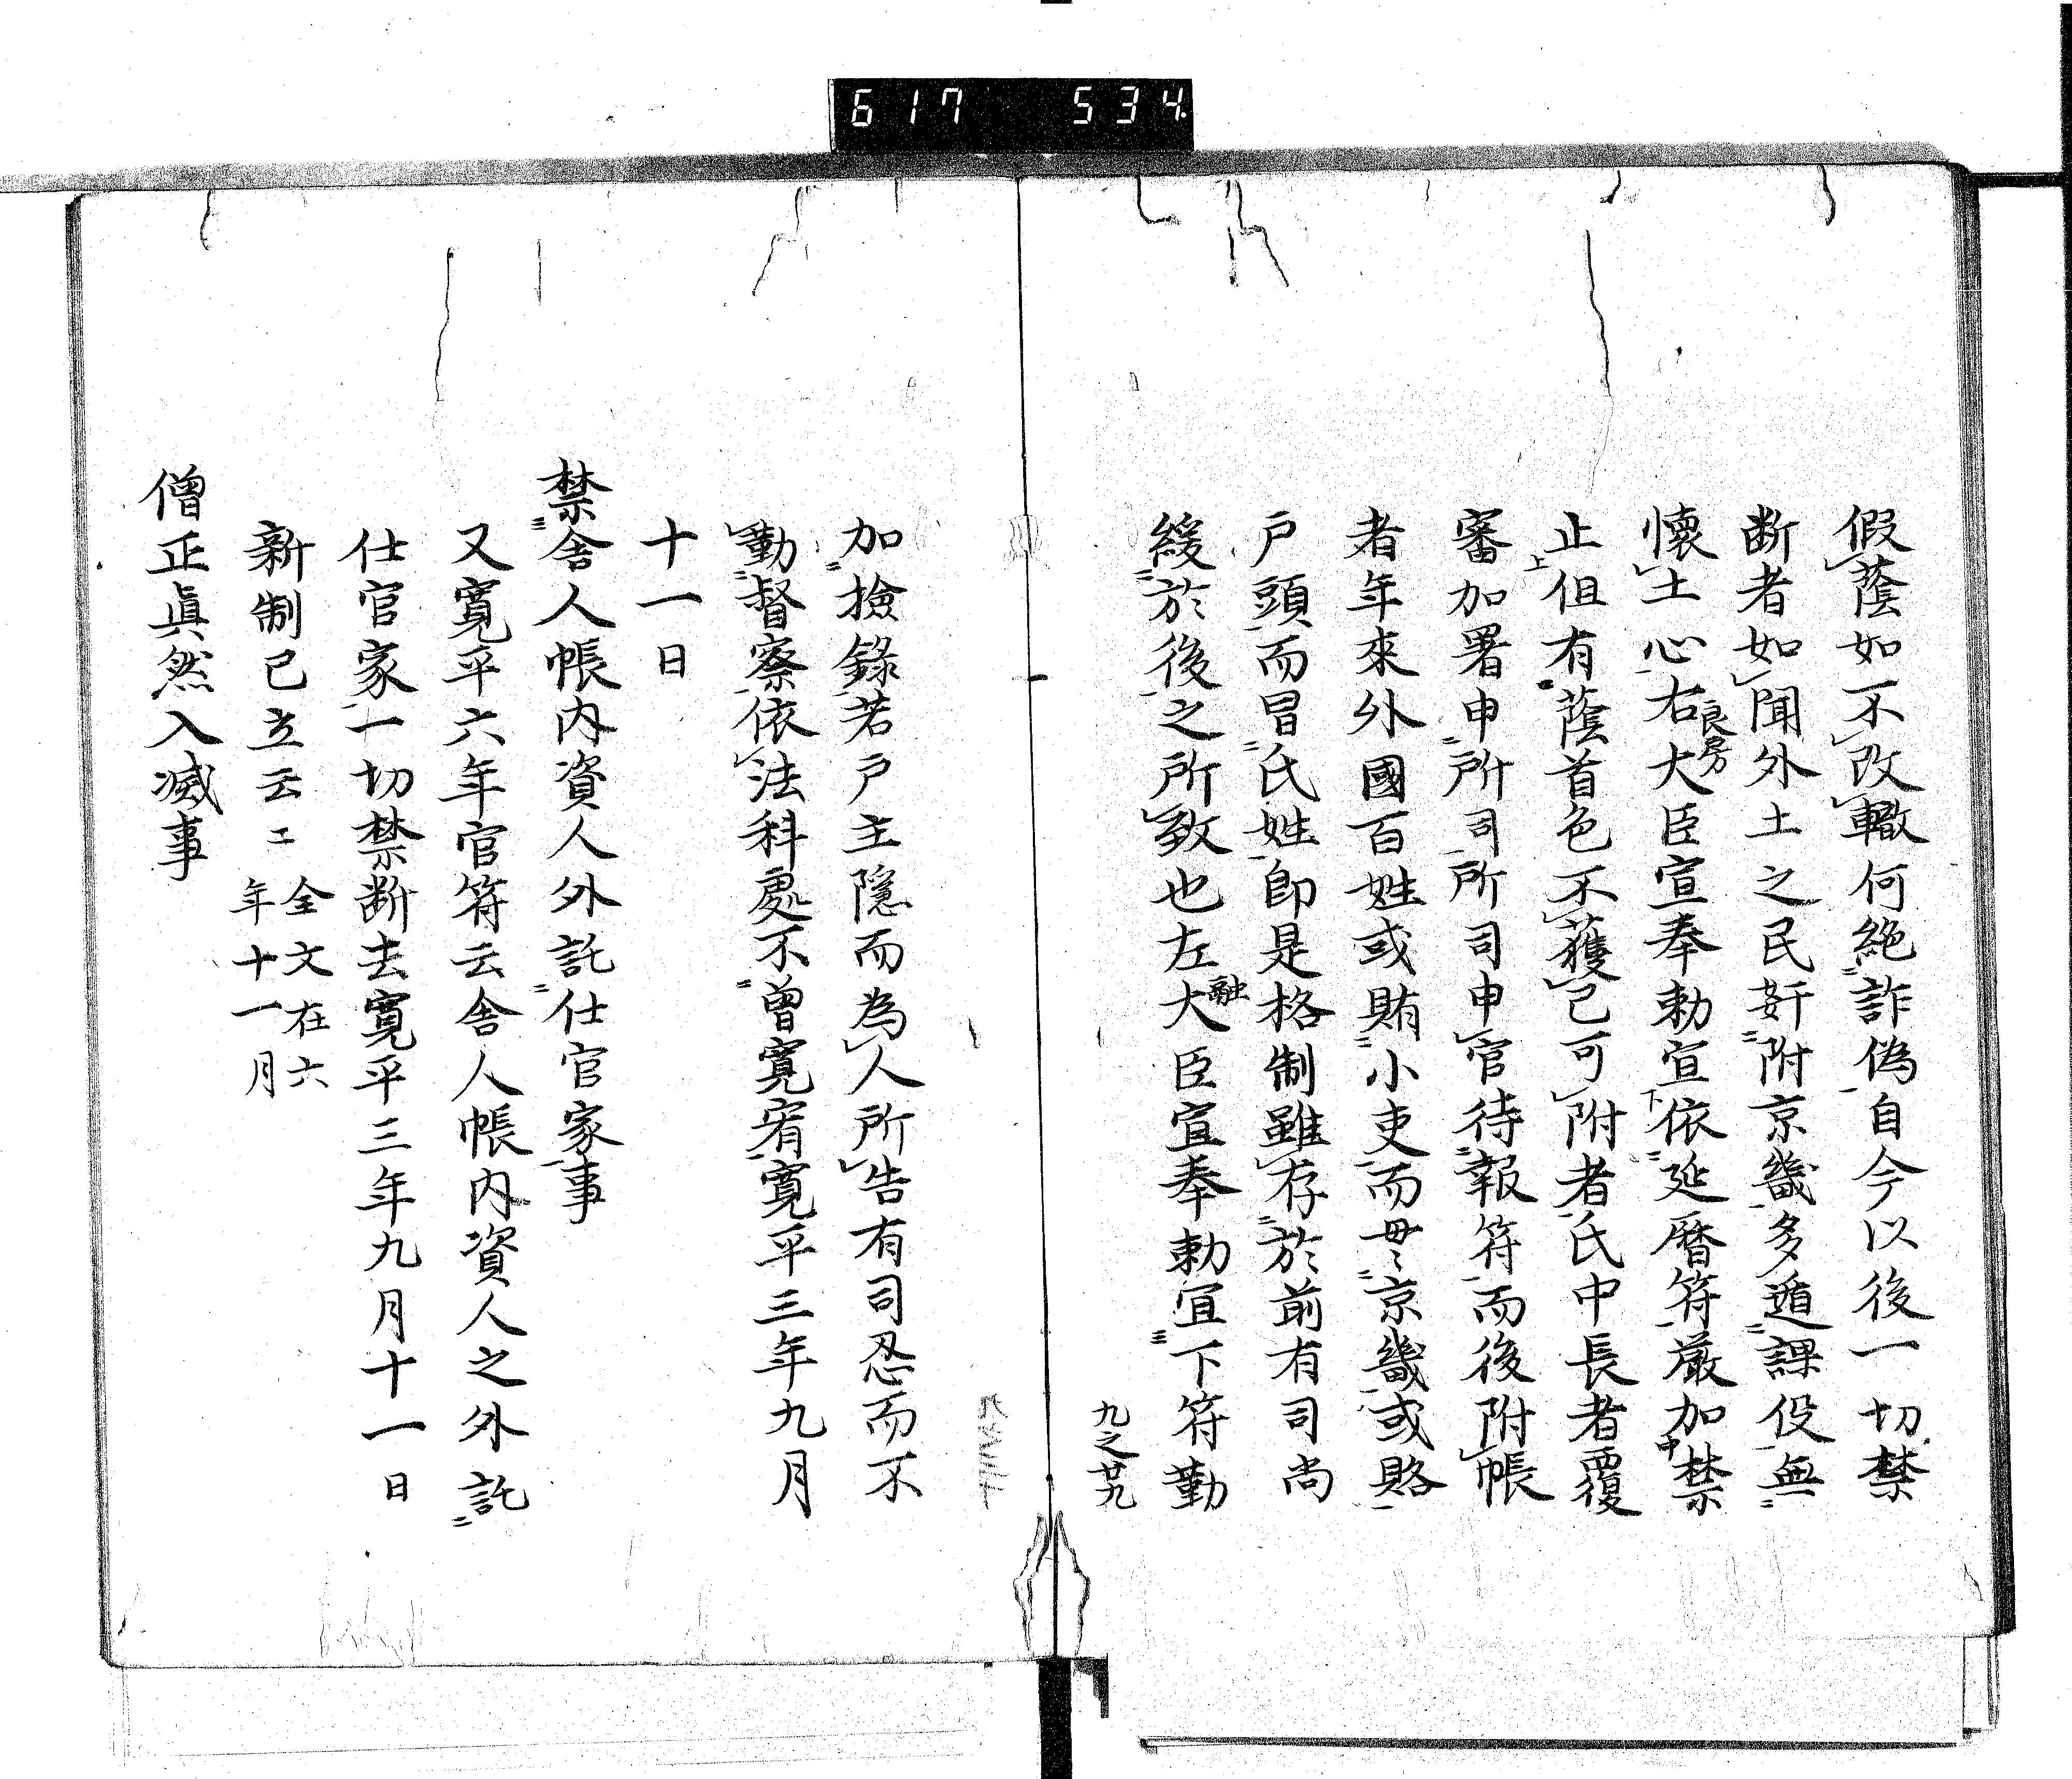 617 534
假蔭如不改轍何絶詐偽自今以後一切禁
断者如聞外土之民姧附京畿多遁課役無
懐土心右大臣宣奉勅宣依延暦符厳加禁
良房
止但有蔭首色不獲已可附者氏中長者覆
審加署申所司所司申官待報符而後附帳
者年來外國百姓或賄小吏而貫京畿或賂
戸頭而冒氏姓即是格制雖存於前有司尚
緩於後之所致也左大臣宣奉勅宜下符勤
融
九之廿九
加撿錄若戸主隠而為人所告有司忍而不
勤督察依法科處不曽寛宥寛平三年九月
十一日
禁舎人帳内資人外託仕官家事
又寛平六年官符云舎人帳内資人之外託
仕官家一切禁断去寛平三年九月十一日
新制已立云々
全文在六
年十一月
僧正眞然入滅事